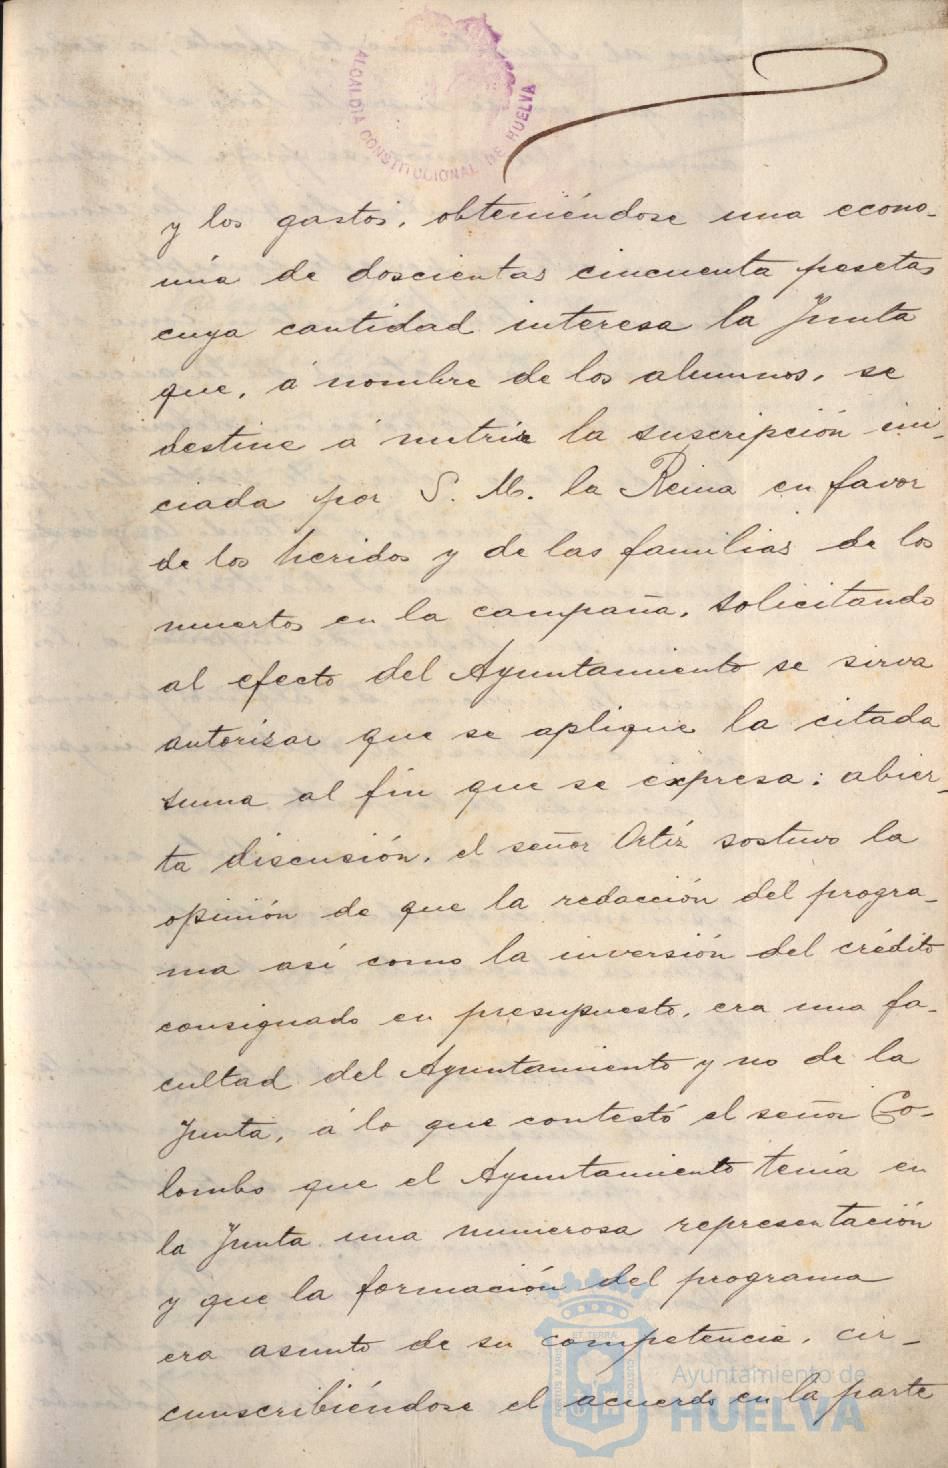 ALCALDIA CONSTITUCIONAL DE HUELVA
y los gastos, obteniéndose una econo-
mía de doscientas cincuenta pesetas
cuya cantidad interesa la Junta
que, á nombre de los alumnos, se
destine á nutrir la suscripción ini-
ciada por S. M. la Reina en favor
de los heridos y de las familias de los
muertos en la campaña, solicitando
al efecto del Ayuntamiento se sirva
autorizar que se aplique la citada
suma al fin que se expresa: abier-
ta discusión, el señor Ortíz sostuvo la
opinión de que la redacción del progra-
ma así como la inversión del crédito
consignado en presupuesto, era una fa-
cultad del Ayuntamiento y no de la
Junta, á lo que contestó el señor Co-
lombo que el Ayuntamiento tenía en
la Junta una numerosa representación
y que la formación del programa
era asunto de su competencia, cir-
cunscribiéndose el acuerdo en la parte
PORTUS MARIS ET TERRÆ CUSTODIA
Ayuntamiento de
HUELVA